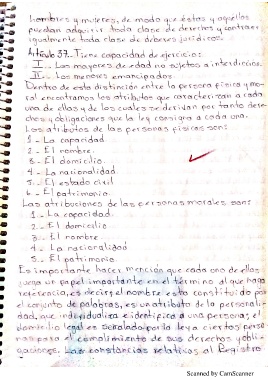 hombres y mujeres, de modo que éstas y aquellos
puedan adquirir toda clase de derechos y contraer
igualmente toda clase de deberes jurídicos.
Artículo 37. Tiene capacidad de ejercicio:
I.- Los mayores de edad no sujetos a interdicción.
II.- Los menores emancipados.
Dentro de esta distinción entre la persona física y mo-
ral encontramos los atributos que caracterizan a cada
una de ellas y de los cuales se derivan por tanto dere-
chos y obligaciones que la ley consigna a cada una.
Los atributos de las personas físicas son:
1.- La capacidad
2.- El nombre.
3.- El domicilio.
4.- La nacionalidad.
5.- El estado civil
6.- El patrimonio.
Las atribuciones de las personas morales son:
1.- La capacidad.
2.- El domicilio
3.- El nombre
4.- La nacionalidad
5.- El patrimonio
Es importante hacer mención que cada uno de ellos
juega un papel importante en el término al que haga
referencia, es decir, el nombre esta constituido por
el conjunto de palabras, es un atributo de la personali-
dad, que individualiza e identifica a una persona; el
domicilio legal es señalado por la ley a ciertas perso
nas para el cumplimiento de sus derechos y obli-
gaciones. Las constancias relativas al Registro
Scanned by CamScanner